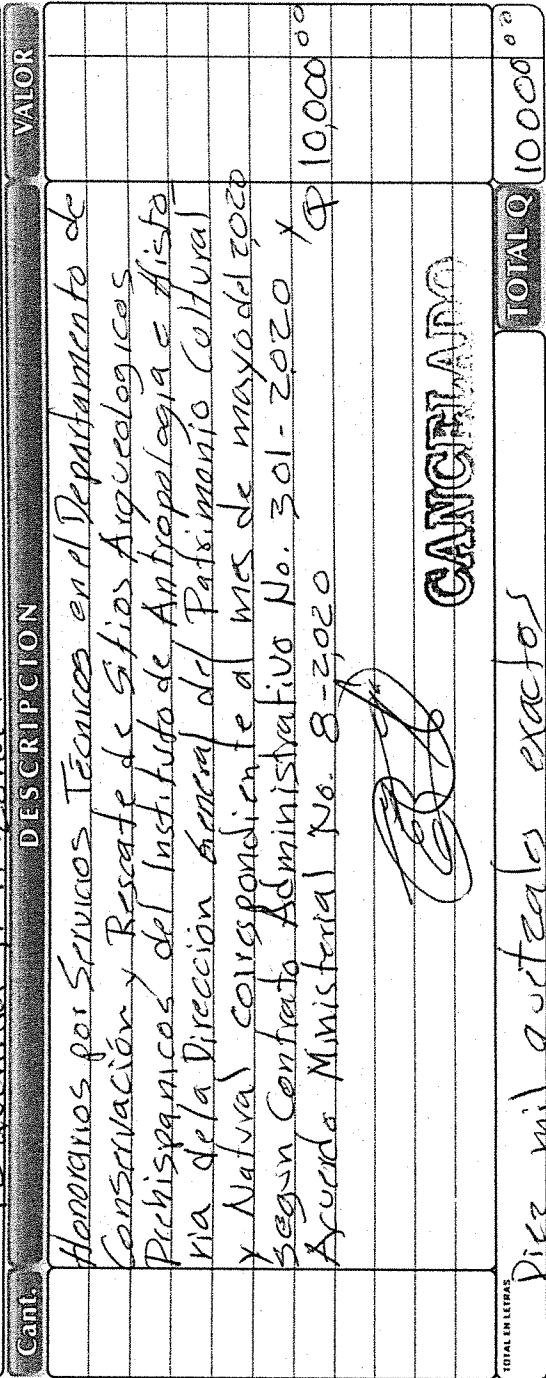 Cant. DESCRIPCION VALOR
Honorarios por Servicios Técnicos en el Departamento de
Conservación y Rescate de Sitios Arqueologicos
Prehispanicos del Instituto de Antropologia e Histo
ria de la Dirección General del Patrimonio Cultural
y Natural correspondiente al mes de mayo del 2020
según Contrato Administrativo No. 301-2020 y Q 10,000 00
Acuerdo Ministerial No. 8-2020
CANCELADO
TOTAL EN LETRAS Diez mil quetzales exactos TOTAL Q 10000 00